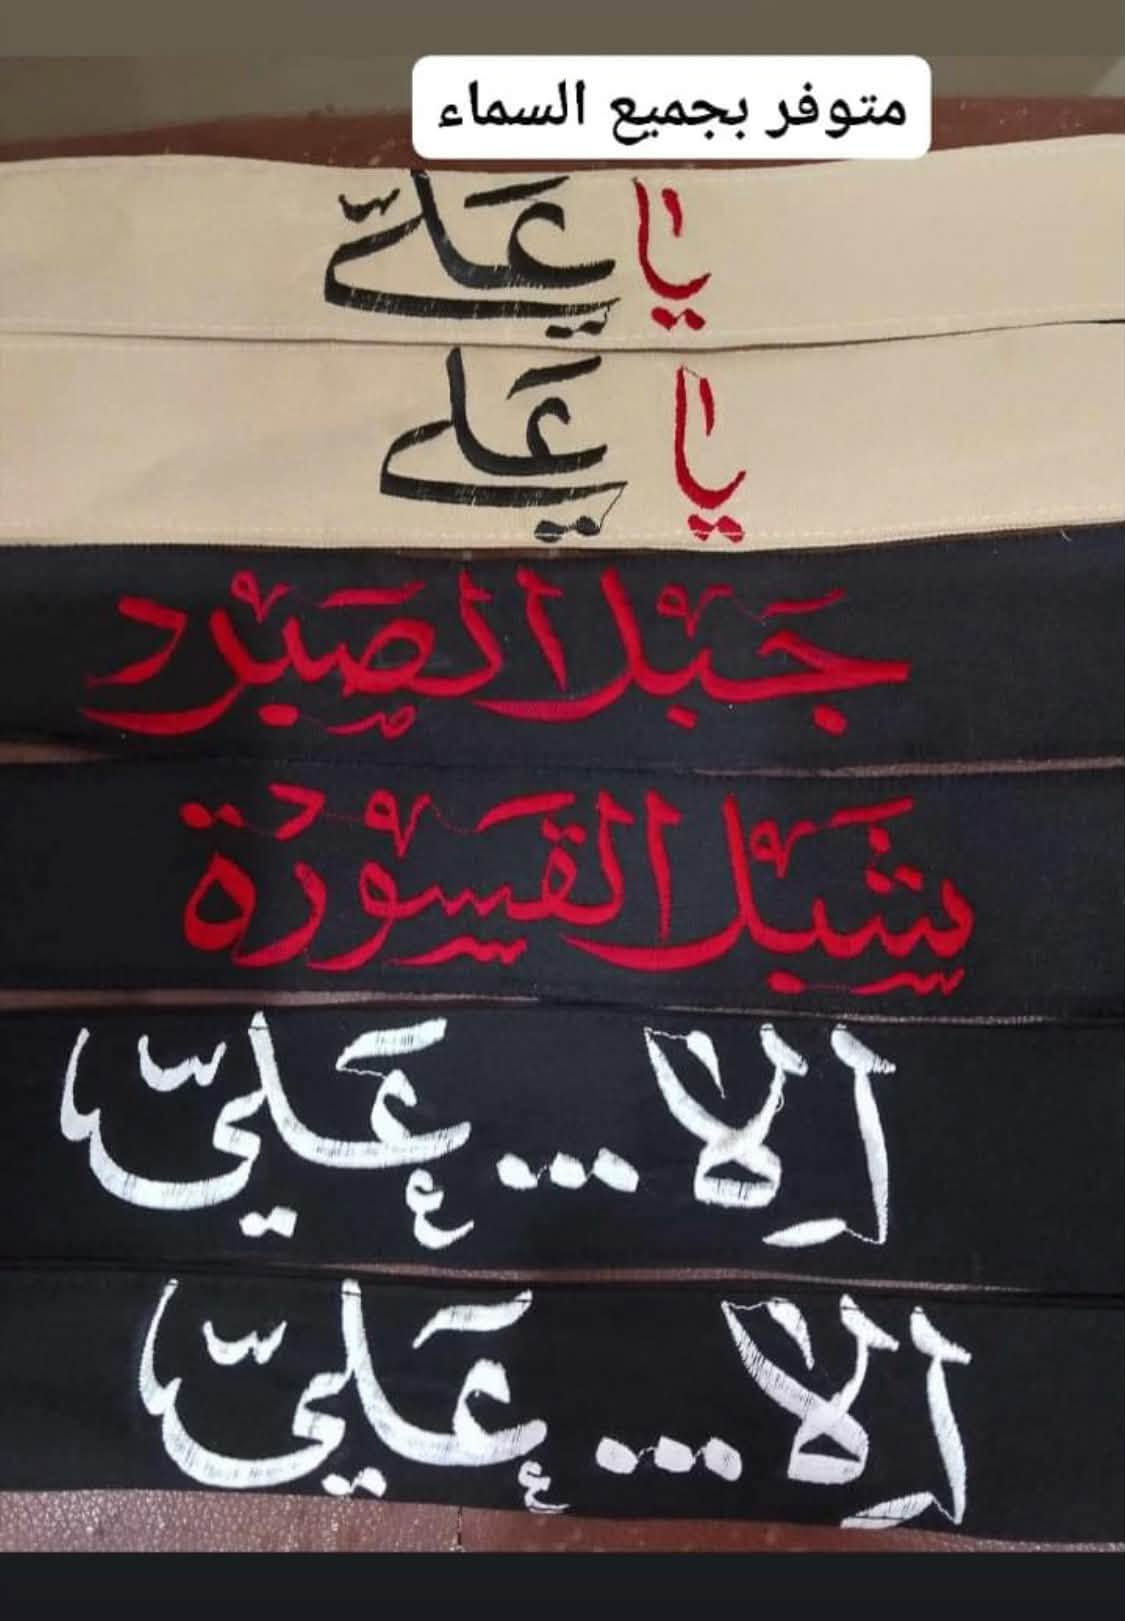 متوفر بجميع السماء
يا عَليّ
يا عَلي
جَبل الصَبر
شَبل القَسورة
اِلا ... عَليّ
اِلا ... عَليّ